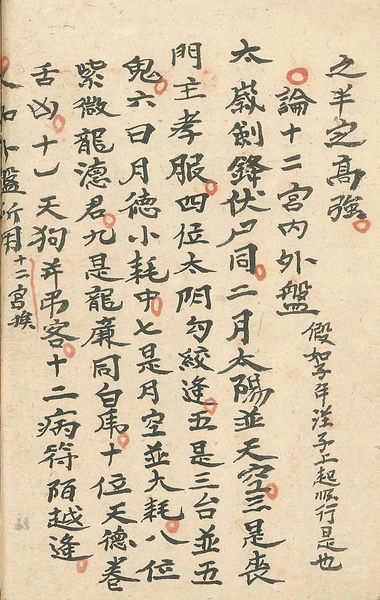 之半定高強
論十二宮內外盤 假如子年從子上起順行是也
太歲劍鋒伏尸同二月太陽並天空三是喪
門主孝服四位太阴勾絞逢五是三台並五
鬼六曰月德小耗中七是月空並大耗八位
紫微龍德君九是龍廉同白虎十位天德卷
舌凶十一天狗并吊客十二病符陌越逢
盤所用十二宮挨